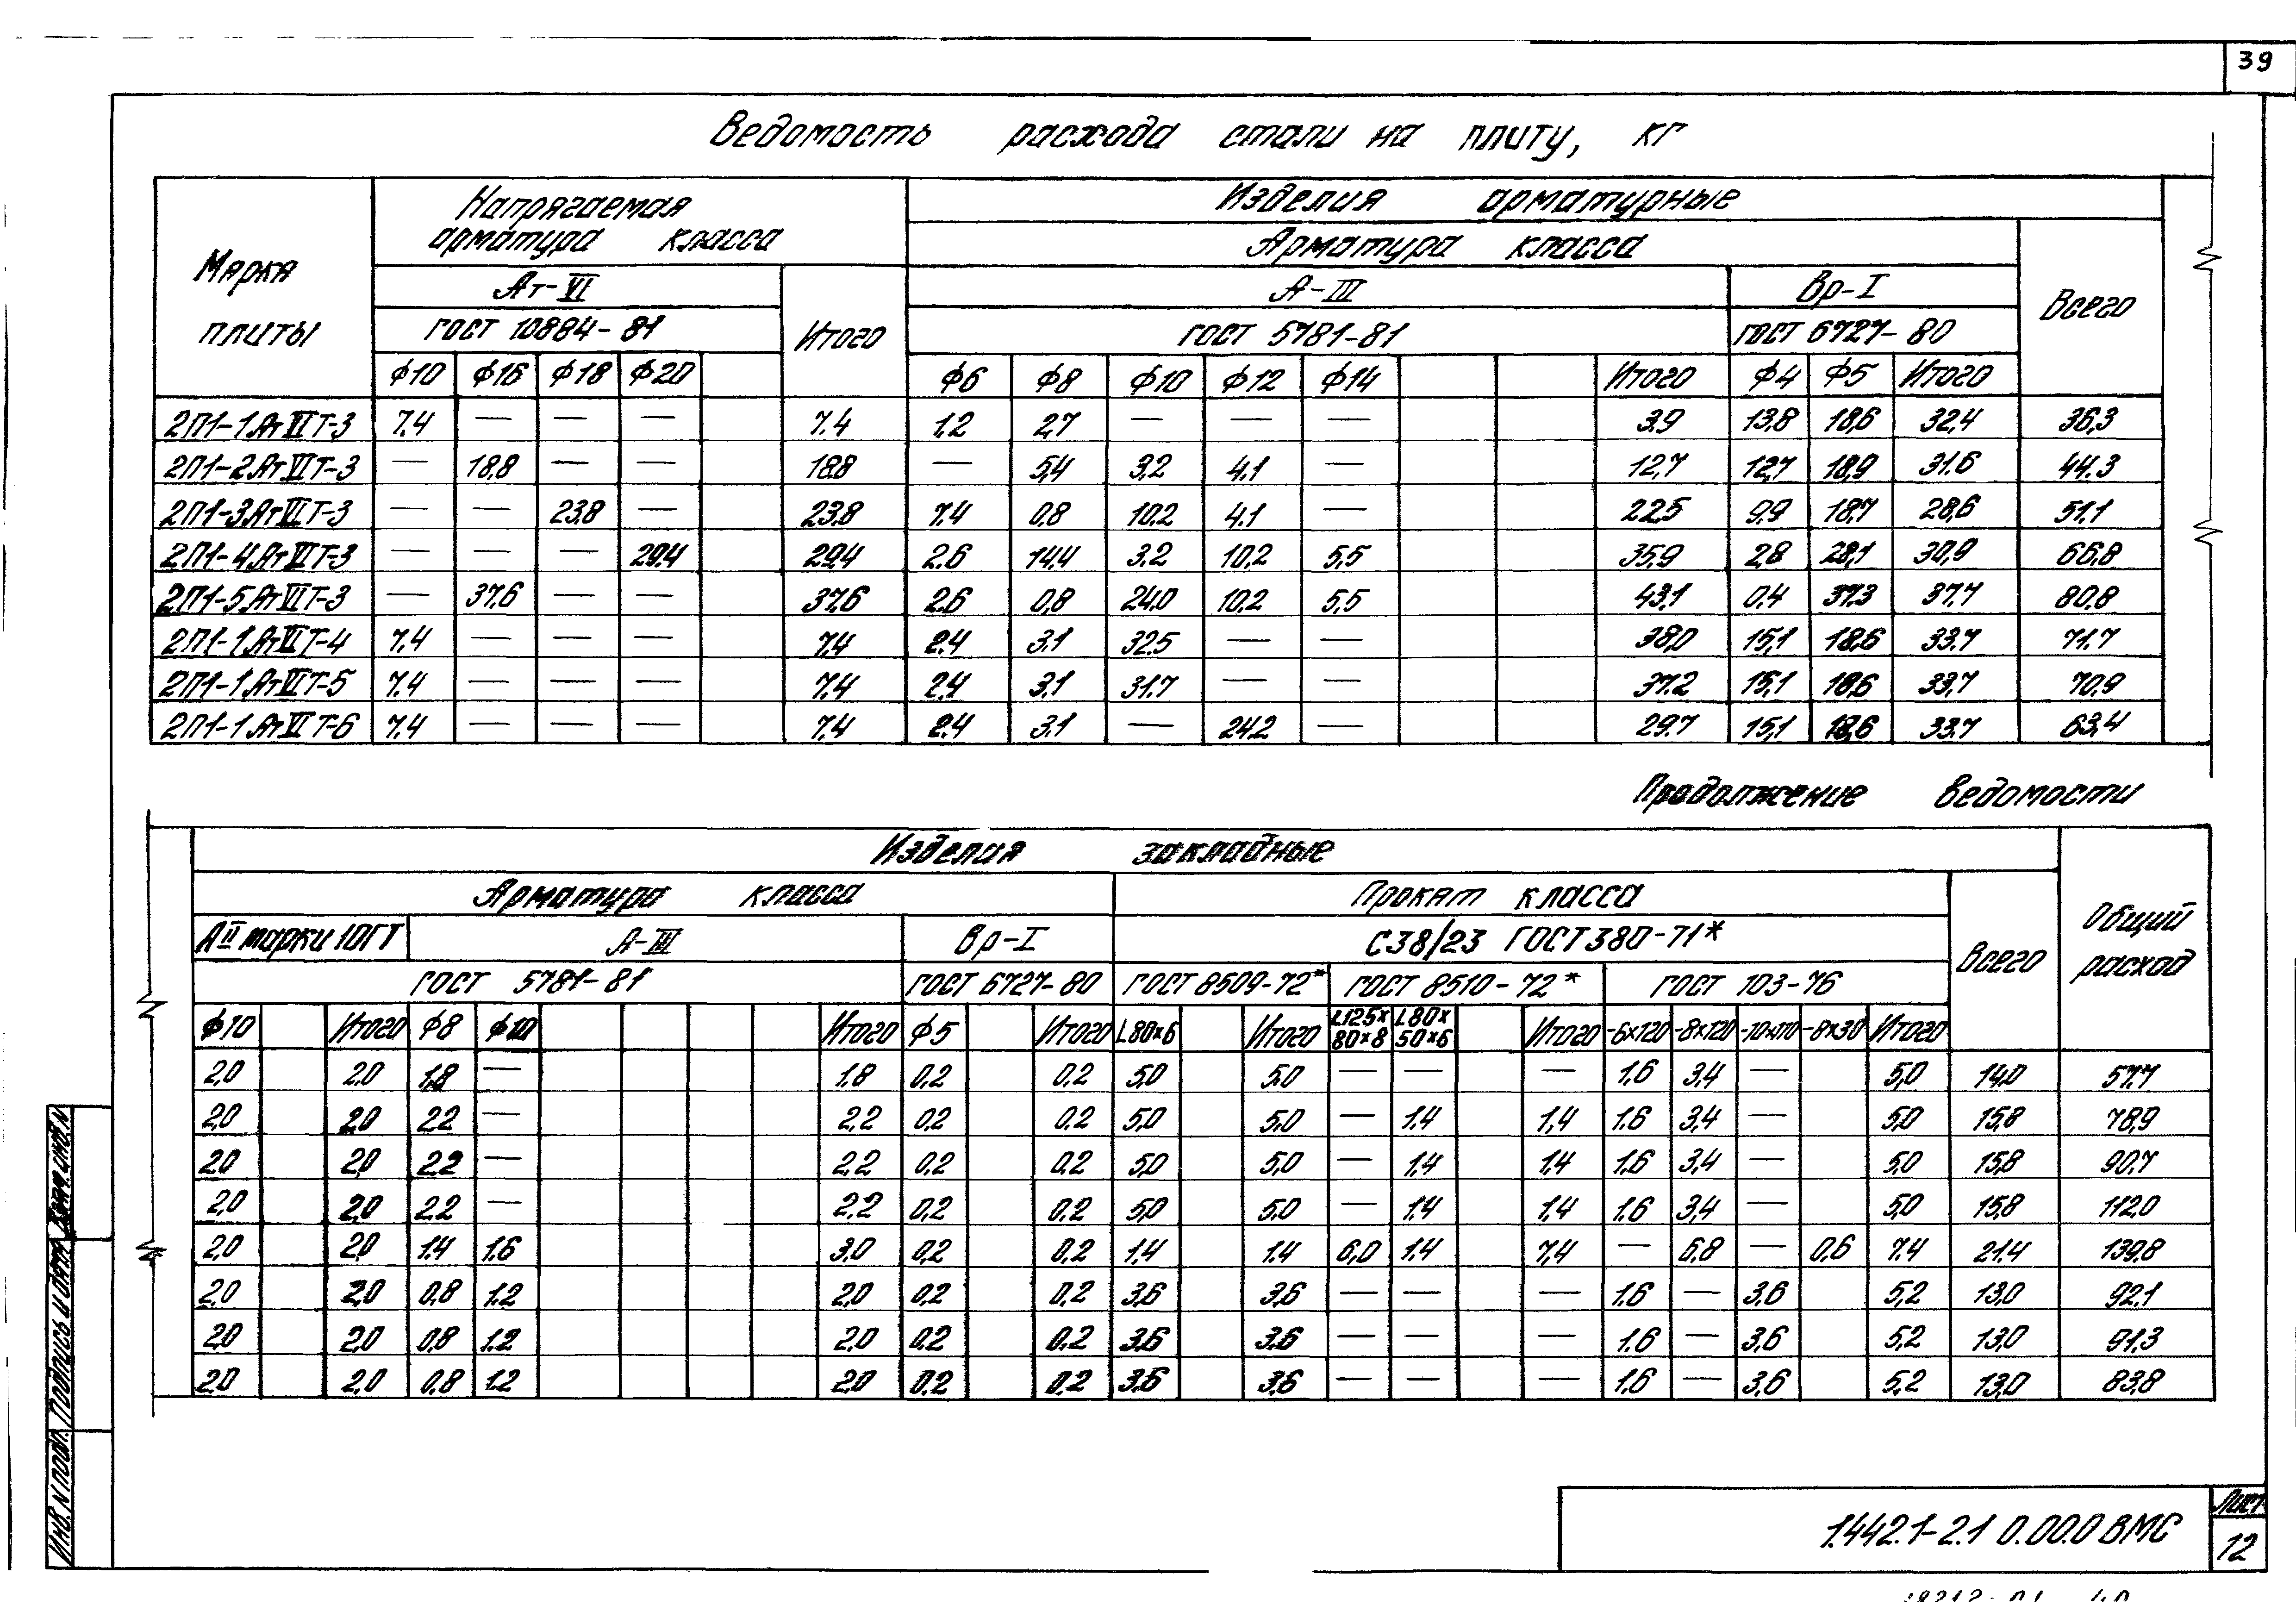 39
Ведомость расхода стали на плиту, кг
Марка плиты
Напрягаемая арматура класса
Изделия арматурные
Арматура класса
Ат-VI
Итого
А-III
Вр-I
Всего
ГОСТ 10884-81
ГОСТ 5781-81
ГОСТ 6727-80
ф10 ф16 ф18 ф20 ф6 ф8 ф10 ф12 ф14 Итого ф4 ф5 Итого
2П1-1АтVIТ-3 7.4 — — — 7.4 1.2 2,7 — — — 3.9 13.8 18,6 32,4 36,3
2П1-2АтVIТ-3 — 18,8 — — 18.8 — 5,4 3,2 4.1 — 12,7 12,7 18,9 31.6 44.3
2П1-3АтVIТ-3 — — 23.8 — 23.8 7.4 0.8 10.2 4.1 — 22.5 9.9 18,7 28,6 51,1
2П1-4АтVIТ-3 — — — 29.4 29.4 2.6 14,4 3.2 10,2 5,5 35,9 2,8 28,1 30,9 66,8
2П1-5АтVIТ-3 — 37.6 — — 37.6 2.6 0,8 24.0 10.2 5,5 43,1 0.4 37,3 37.7 80,8
2П1-1АтVIТ-4 7.4 — — — 7.4 2.4 3.1 32.5 — — 38,0 15,1 18,6 33.7 71.7
2П1-1АтVIТ-5 7.4 — — — 7.4 2.4 3.1 31.7 — — 37.2 15,1 18,6 33,7 70,9
2П1-1АтVIТ-6 7.4 — — — 7.4 2.4 3.1 — 24.2 — 29.7 15,1 18,6 33,7 63,4
Продолжение ведомости
Изделия закладные
Общий расход
Арматура класса
Прокат класса
Всего
АII марки 10ГТ
А-III
Вр-I
С38/23 ГОСТ 380-71*
ГОСТ 5781-81
ГОСТ 6727-80
ГОСТ 8509-72*
ГОСТ 8510-72*
ГОСТ 103-76
ф10 Итого ф8 ф10 Итого ф5 Итого L80×6 Итого L125×80×8 L80×50×6 Итого -6×120 -8×120 -10×100 -8×30 Итого
2,0 2.0 1,8 — 1.8 0.2 0.2 5,0 5,0 — — — 1.6 3,4 — 5,0 14,0 57.7
2,0 2,0 2,2 — 2,2 0.2 0.2 5,0 5,0 — 1.4 1,4 1.6 3,4 — 5,0 15,8 78,9
2,0 2,0 2,2 — 2,2 0,2 0.2 5,0 5,0 — 1,4 1,4 1.6 3,4 — 5,0 15,8 90,7
2,0 2,0 2.2 — 2,2 0,2 0.2 5,0 5,0 — 1.4 1,4 1.6 3,4 — 5,0 15,8 112,0
2,0 2,0 1.4 1.6 3.0 0,2 0.2 1,4 1.4 6,0 1.4 7,4 — 6,8 — 0,6 7.4 21.4 139.8
2,0 2,0 0,8 1.2 2,0 0,2 0.2 3,6 3,6 — — — 1.6 — 3,6 5,2 13,0 92.1
2,0 2,0 0,8 1.2 2,0 0,2 0.2 3,6 3,6 — — — 1.6 — 3,6 5,2 13,0 91.3
2,0 2,0 0,8 1.2 2,0 0,2 0.2 3,6 3,6 — — — 1.6 — 3,6 5,2 13,0 83,8
Взам. инв. N
Подпись и дата
Инв. N подл.
1.442.1-2.1 0.00.0 ВМС
Лист
12